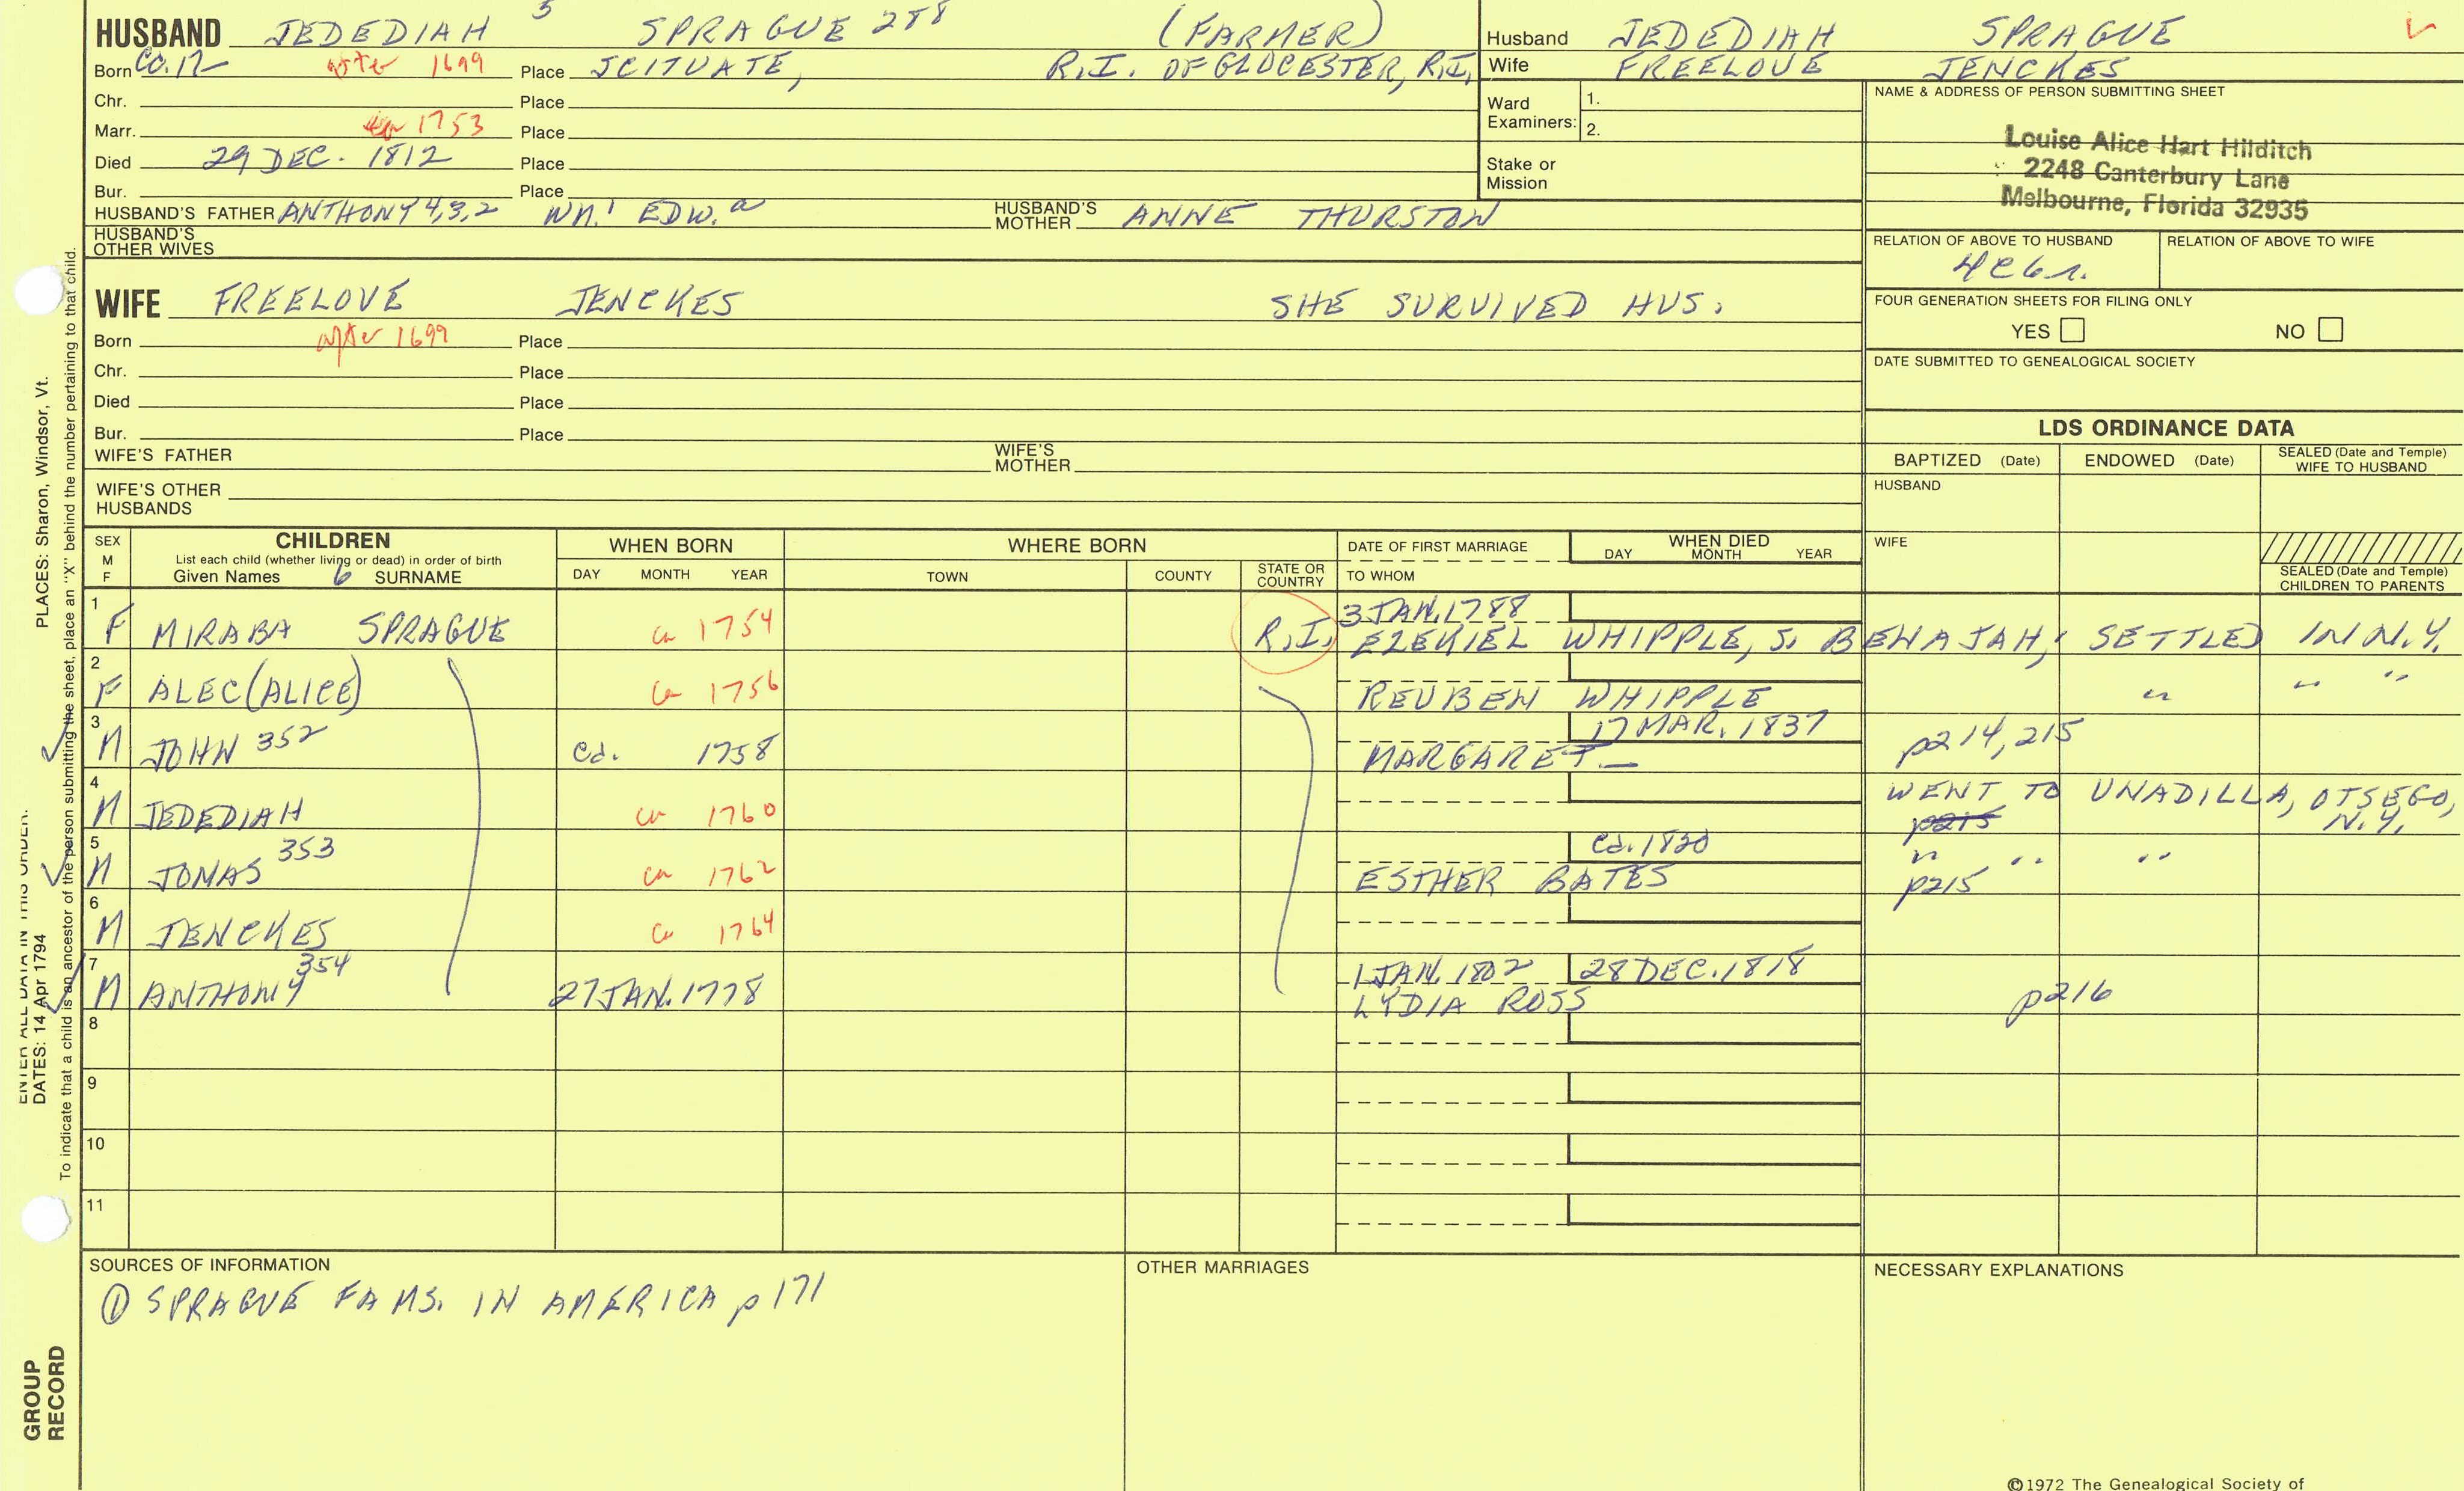 HUSBAND JEDEDIAH 5 SPRAGUE 288 (FARMER)
Born after 1699 Place SCITUATE, R.I. OF GLOCESTER, R.I.
Chr. Place
Marr. 1753 Place
Died 29 DEC. 1812 Place
Bur. Place
HUSBAND'S FATHER ANTHONY 4,3,2 WM.1 EDW.a HUSBAND'S MOTHER ANNE THURSTON
HUSBAND'S OTHER WIVES
WIFE FREELOVE JENCKES SHE SURVIVED HUS.
Born after 1699 Place
Chr. Place
Died Place
Bur. Place
WIFE'S FATHER WIFE'S MOTHER
WIFE'S OTHER HUSBANDS
Husband JEDEDIAH SPRAGUE
Wife FREELOVE JENCKES
Ward Examiners: 1.
2.
Stake or Mission
NAME & ADDRESS OF PERSON SUBMITTING SHEET
Louise Alice Hart Hilditch
2248 Canterbury Lane
Melbourne, Florida 32935
RELATION OF ABOVE TO HUSBAND RELATION OF ABOVE TO WIFE
FOUR GENERATION SHEETS FOR FILING ONLY
YES NO
DATE SUBMITTED TO GENEALOGICAL SOCIETY
LDS ORDINANCE DATA
BAPTIZED (Date) ENDOWED (Date) SEALED (Date and Temple) WIFE TO HUSBAND
HUSBAND
WIFE
SEALED (Date and Temple) CHILDREN TO PARENTS
SEX M F
CHILDREN
List each child (whether living or dead) in order of birth
Given Names 6 SURNAME
WHEN BORN
DAY MONTH YEAR
WHERE BORN
TOWN COUNTY STATE OR COUNTRY
DATE OF FIRST MARRIAGE
TO WHOM
WHEN DIED
DAY MONTH YEAR
1 3 JAN. 1788
F MIRABA SPRAGUE ca 1754 R.I. EZEKIEL WHIPPLE, S. BENAJAH; SETTLED IN N.Y.
2
F ALEC (ALICE) ca 1756 REUBEN WHIPPLE " " "
3 17 MAR. 1837
M JOHN 352 ca. 1758 MARGARET — p214, 215
4
M JEDEDIAH ca 1760 WENT TO UNADILLA, OTSEGO, N.Y.
p215
5 ca. 1830
M JONAS 353 ca 1762 ESTHER BATES " " "
p215
6
M JENCKES ca 1764
7 1 JAN. 1802 28 DEC. 1818
M ANTHONY 354 27 JAN. 1778 LYDIA ROSS p216
8
9
10
11
SOURCES OF INFORMATION
① SPRAGUE FAMS. IN AMERICA p171
OTHER MARRIAGES
NECESSARY EXPLANATIONS
©1972 The Genealogical Society of
ENTER ALL DATA IN THIS ORDER.
PLACES: Sharon, Windsor, Vt.
DATES: 14 Apr 1794
To indicate that a child is an ancestor of the person submitting the sheet, place an "X" behind the number pertaining to that child.
GROUP RECORD